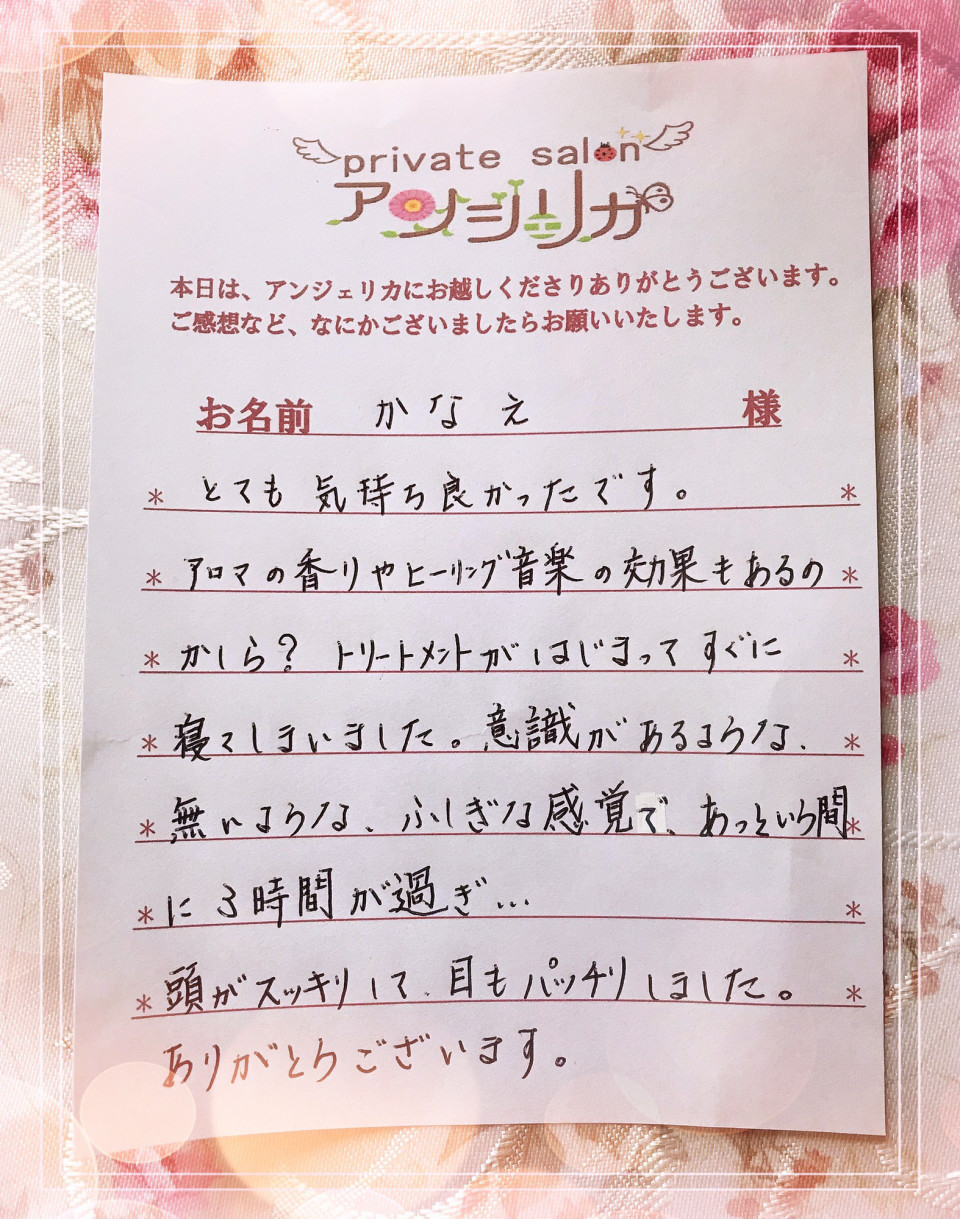 private salon
アンジェリカ
本日は、アンジェリカにお越しくださりありがとうございます。
ご感想など、なにかございましたらお願いいたします。
お名前 かなえ 様
* とても気持ち良かったです。 *
* アロマの香りやヒーリング音楽の効果もあるの *
* かしら? トリートメントがはじまってすぐに *
* 寝てしまいました。意識があるような、 *
* 無いような、ふしぎな感覚で、あっという間 *
* に3時間が過ぎ… *
* 頭がスッキリして、目もパッチリしました。 *
ありがとうございます。